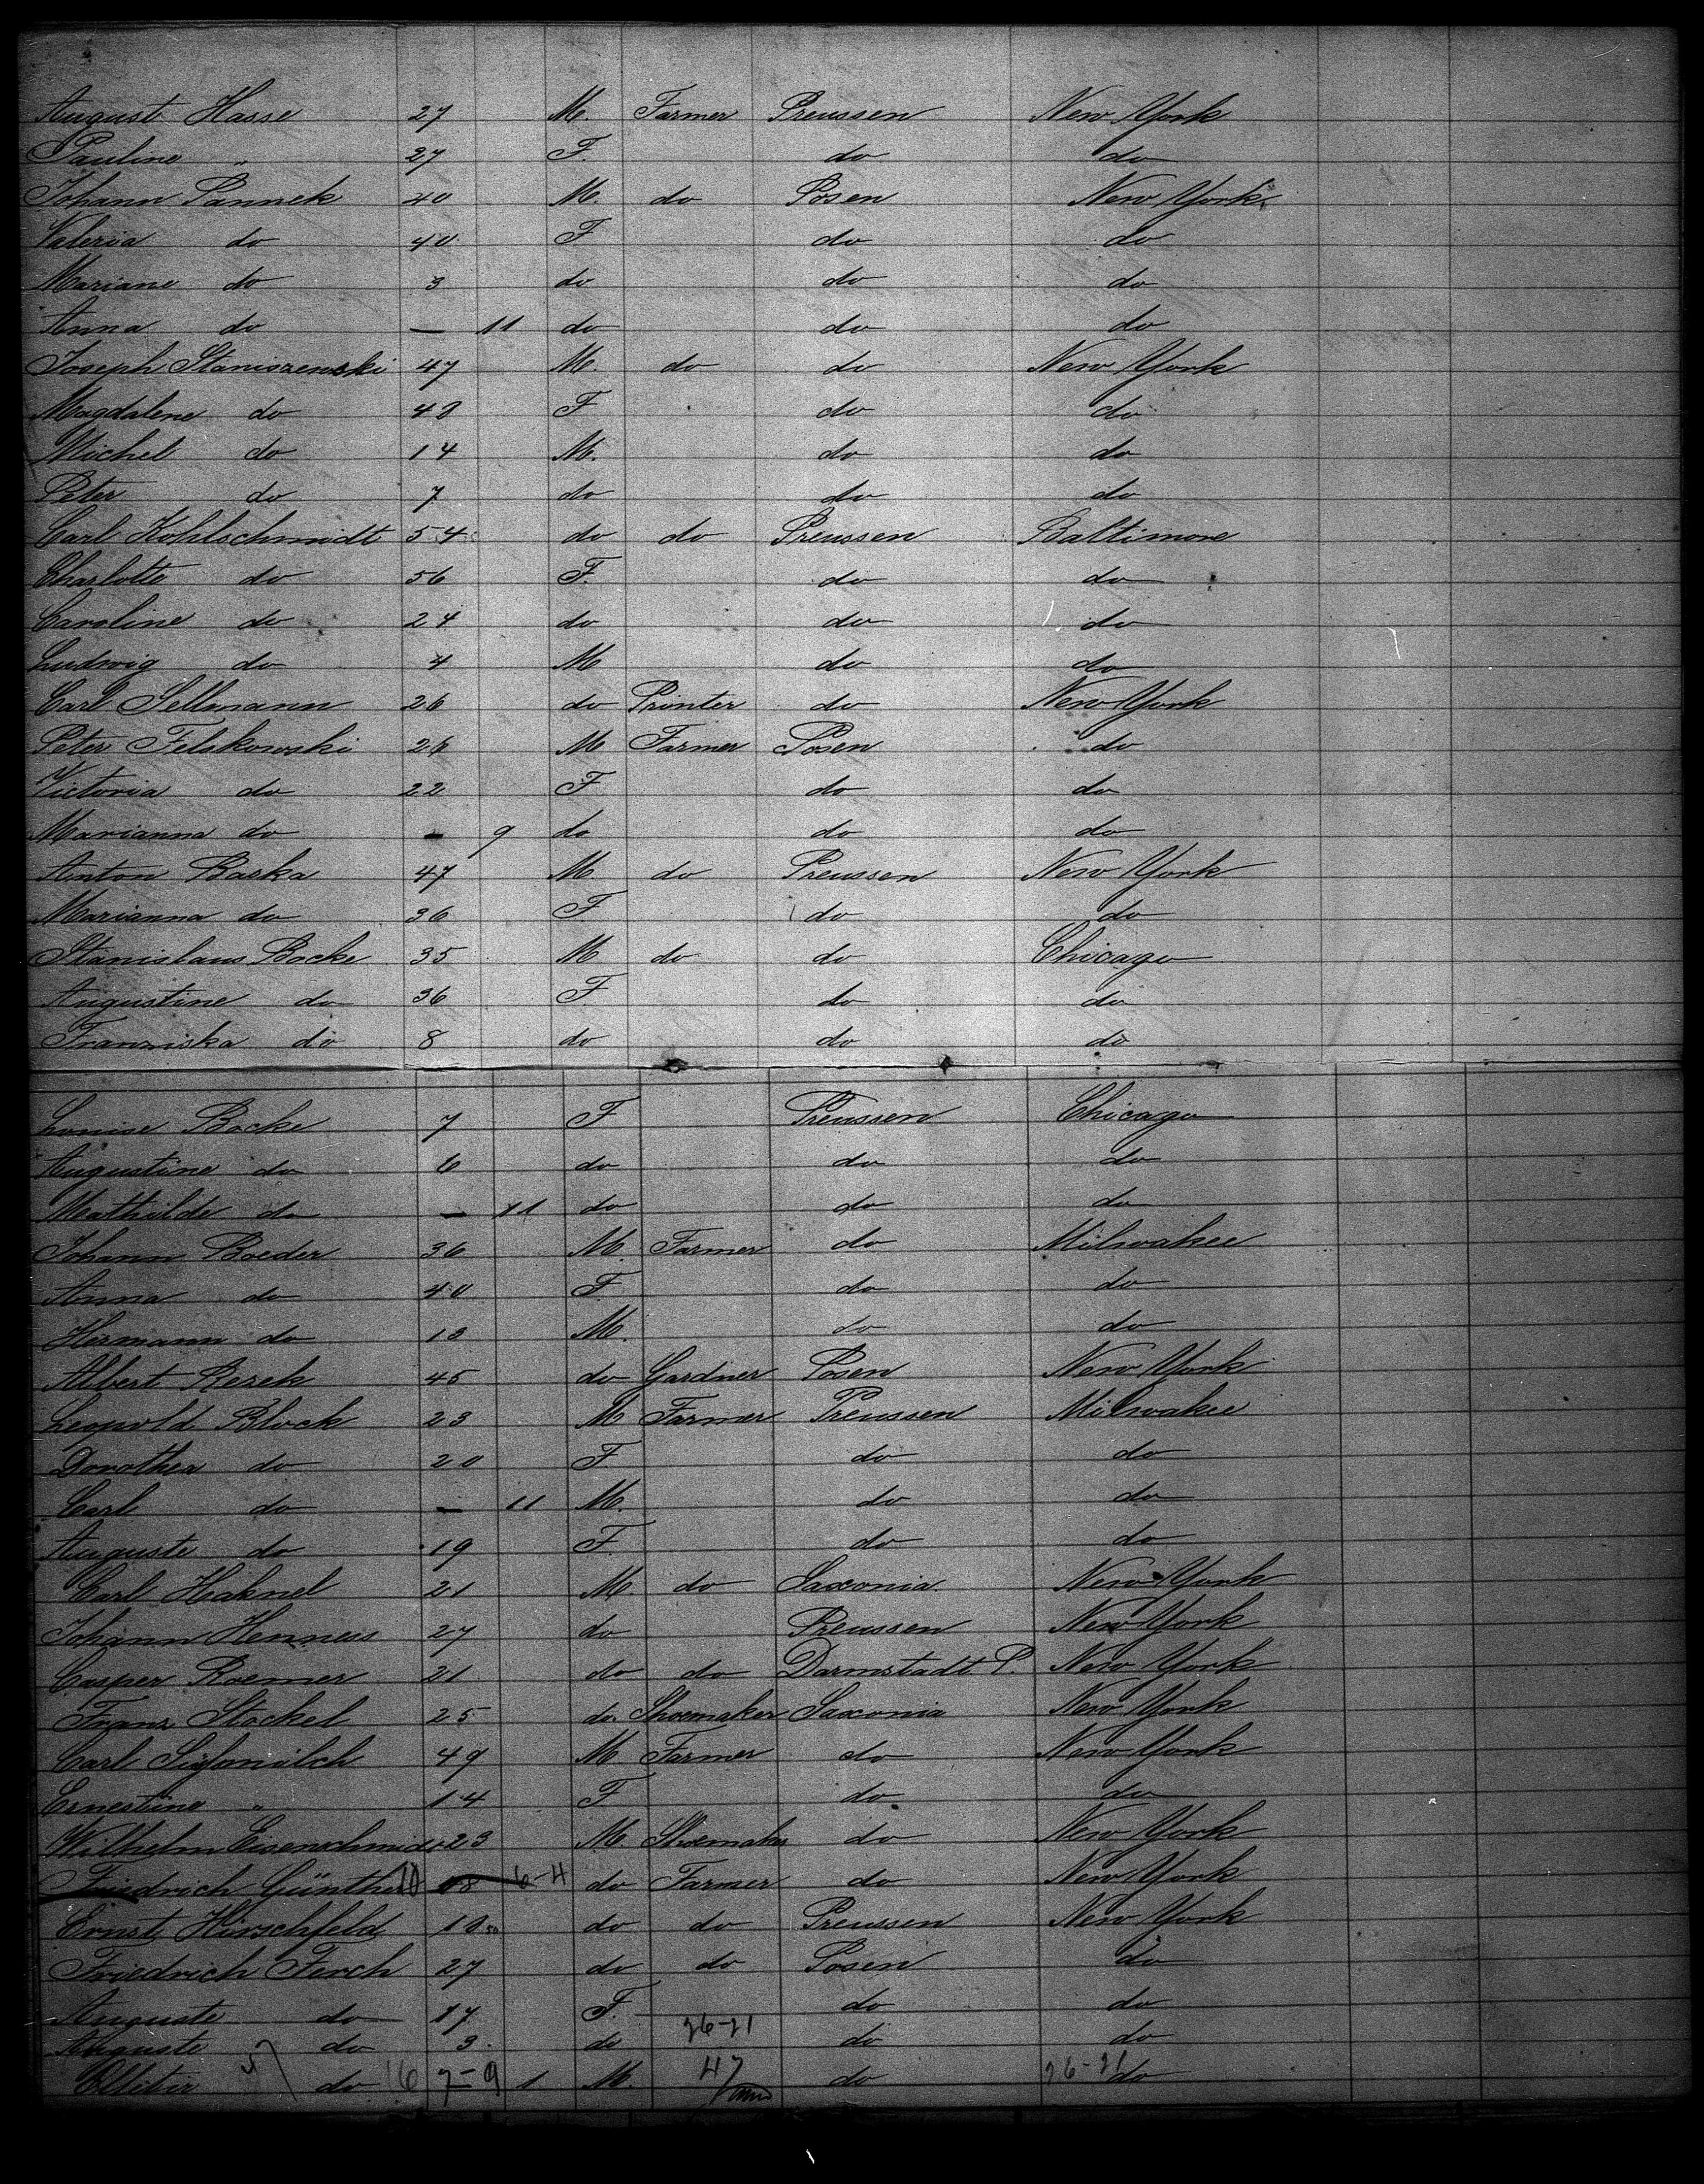 August Hasse 27 M. Farmer Preussen New York
Pauline " 27 F. do do
Johann Pannek 40 M. do Posen New York
Valeria do 40 F do do
Mariane do 3 do do do
Anna do — 11 do do do
Joseph Staniszewski 47 M. do do New York
Magdalene do 49 F do do
Michel do 14 M. do do
Peter do 7 do do do
Carl Kohlschmidt 54 do do Preussen Baltimore
Charlotte do 56 F. do do
Caroline do 24 do do do
Ludwig do 4 M do do
Carl Sellmann 26 do Printer do New York
Peter Felskowski 26 M Farmer Posen do
Victoria do 22 F do do
Marianna do — 9 do do do
Anton Baska 47 M do Preussen New York
Marianna do 36 F do do
Stanislaus Bocke 35 M do do Chicago
Augustine do 36 F do do
Franziska do 8 do do do
Louise Bocke 7 F Preussen Chicago
Augustine do 6 do do do
Mathilde do — 11 do do do
Johann Boeder 36 M. Farmer do Milwakee
Anna do 40 F do do
Hermann do 13 M. do do
Albert Rezek 45 do Gardner Posen New York
Leopold Block 23 M Farmer Preussen Milwakee
Dorothea do 20 F do do
Carl do — 11 M. do do
Auguste do 19 F. do do
Carl Haknel 21 M. do Saxonia New York
Johann Henness 27 do Preussen New York
Casper Roemer 21 do do Darmstadt P. New York
Franz Stockel 25 do. Shoemaker Saxonia New York
Carl 49 M. Farmer do New York
Ernestine " 14 F do do
Wilhelm Eisenschmidt 23 M. Shoemaker do New York
Friedrich Günther 6-H do Farmer do New York
Ernst Hirschfeld do do Preussen New York
Friedrich Ferch 27 do do Posen do
Auguste do 17 F. do do
Auguste do 3. do 26-21 do do
do 16 7-9 1 M. 47 do 26-21 do